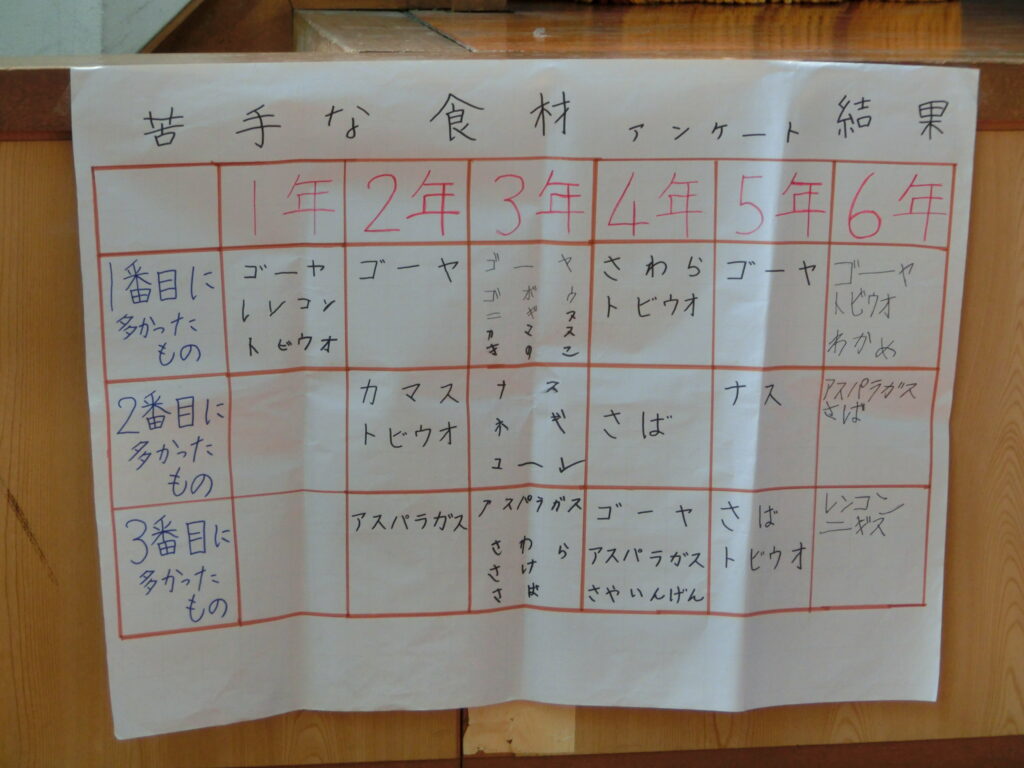 苦手な食材 アンケート 結果
1年 2年 3年 4年 5年 6年
1番目に
多かった
もの
ゴーヤ
レンコン
トビウオ
ゴーヤ
ゴーヤ
ゴボウ
ニギス
カマス
きのこ
さわら
トビウオ
ゴーヤ
ゴーヤ
トビウオ
わかめ
2番目に
多かった
もの
カマス
トビウオ
ナス
ねぎ
さば
ナス
アスパラガス
さば
3番目に
多かった
もの
アスパラガス
アスパラガス
さわら
さけ
さば
ゴーヤ
アスパラガス
さやいんげん
さば
トビウオ
レンコン
ニギス